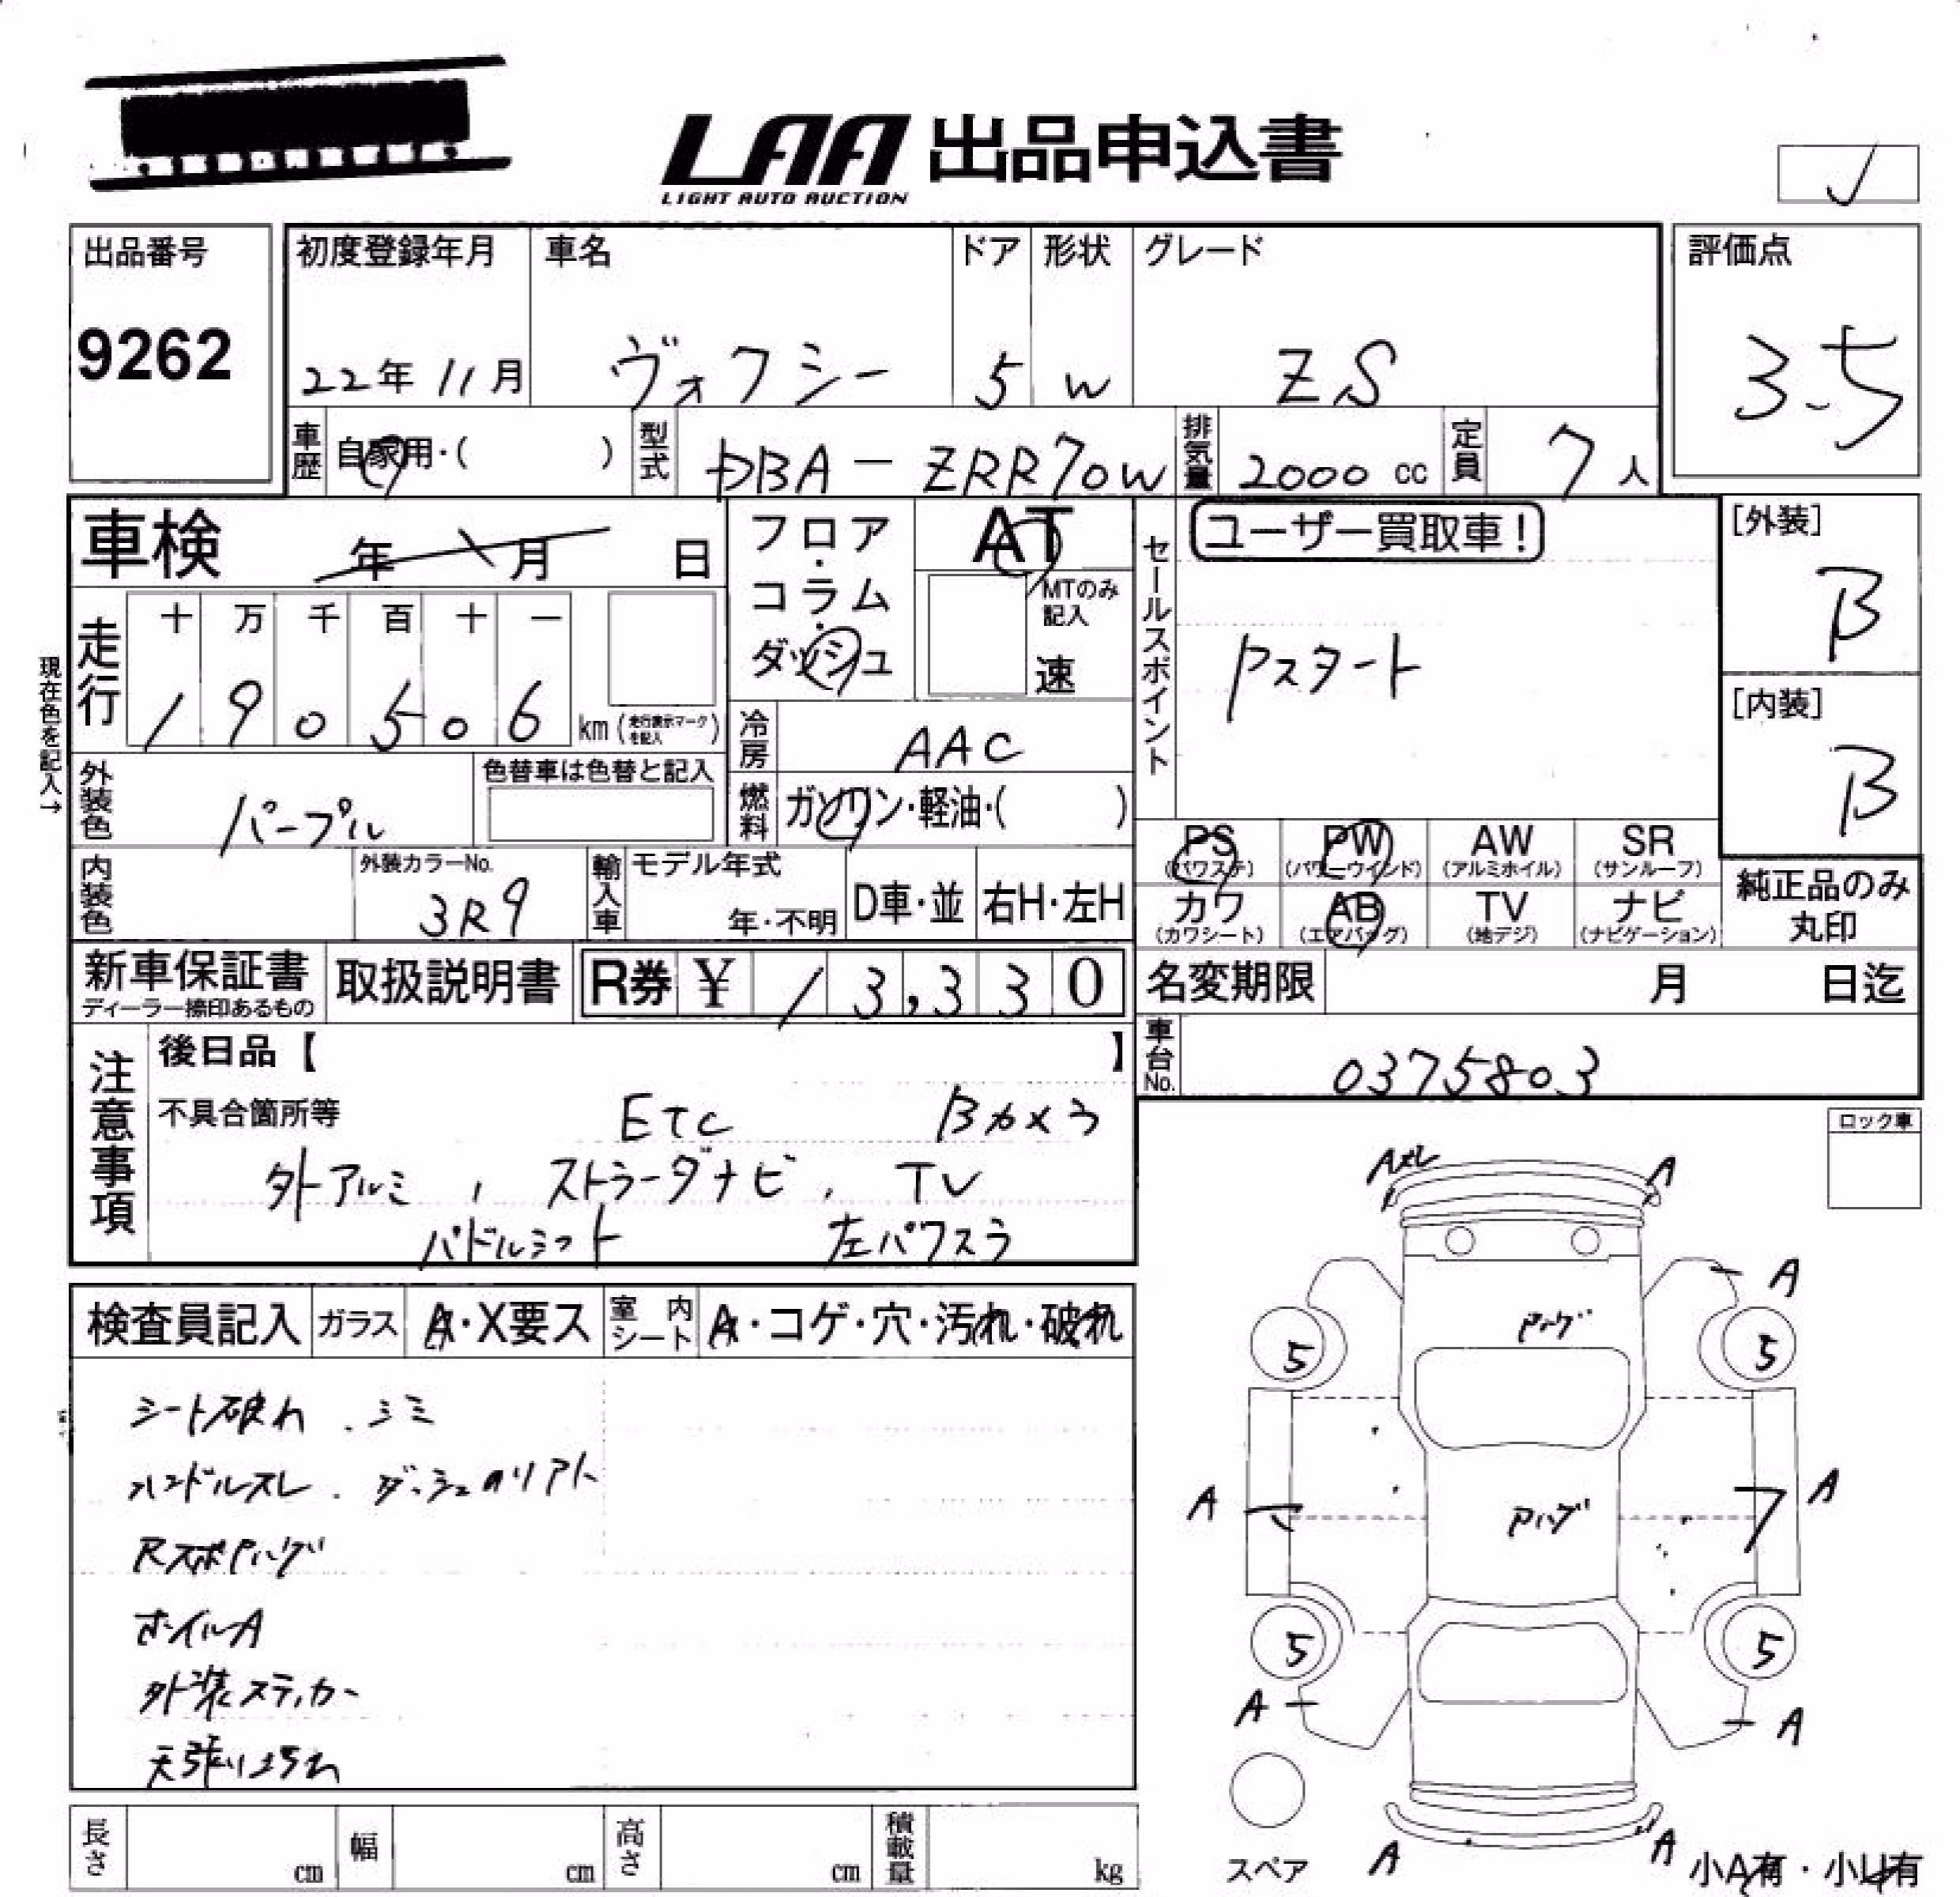 LAA 出品申込書
LIGHT AUTO AUCTION
出品番号
9262
初度登録年月
22年 11月
車名
ヴォクシー
ドア
5
形状
W
グレード
ZS
評価点
3.5
車歴
自家用・( )
型式
DBA－ZRR70W
排気量
2000 cc
定員
7 人
車検
年 月 日
フロア・コラム・ダッシュ
AT
MTのみ記入
速
セールスポイント
ユーザー買取車！
Pスタート
[外装]
B
[内装]
B
現在色を記入→
走行
十 万 千 百 十 一
1 9 0 5 0 6 km (走行表示マークを記入)
冷房
AAC
外装色
パープル
色替車は色替と記入
燃料
ガソリン・軽油・( )
PS (パワステ)
PW (パワーウインド)
AW (アルミホイル)
SR (サンルーフ)
カワ (カワシート)
AB (エアバッグ)
TV (地デジ)
ナビ (ナビゲーション)
純正品のみ丸印
内装色
外装カラーNo.
3R9
輸入車
モデル年式
年・不明
D車・並
右H・左H
新車保証書
ディーラー捺印あるもの
取扱説明書
R券 ¥ 13,330
名変期限 月 日迄
車台No.
0375803
注意事項
後日品【 】
不具合箇所等
ETC Bカメラ
外アルミ , ストラーダナビ , TV
パドルシフト 左パワスラ
ロック車
検査員記入
ガラス
A・X要ス
室内シート
A・コゲ・穴・汚れ・破れ
シート破れ . シミ
ハンドルスレ . ダッシュのりアト
Rスポハゲ
ホイルA
外装ステッカー
天張り汚れ
A A
A
5 5
A A
5 5
A A
A A
スペア
小A有・小U有
長さ cm
幅 cm
高さ cm
積載量 kg